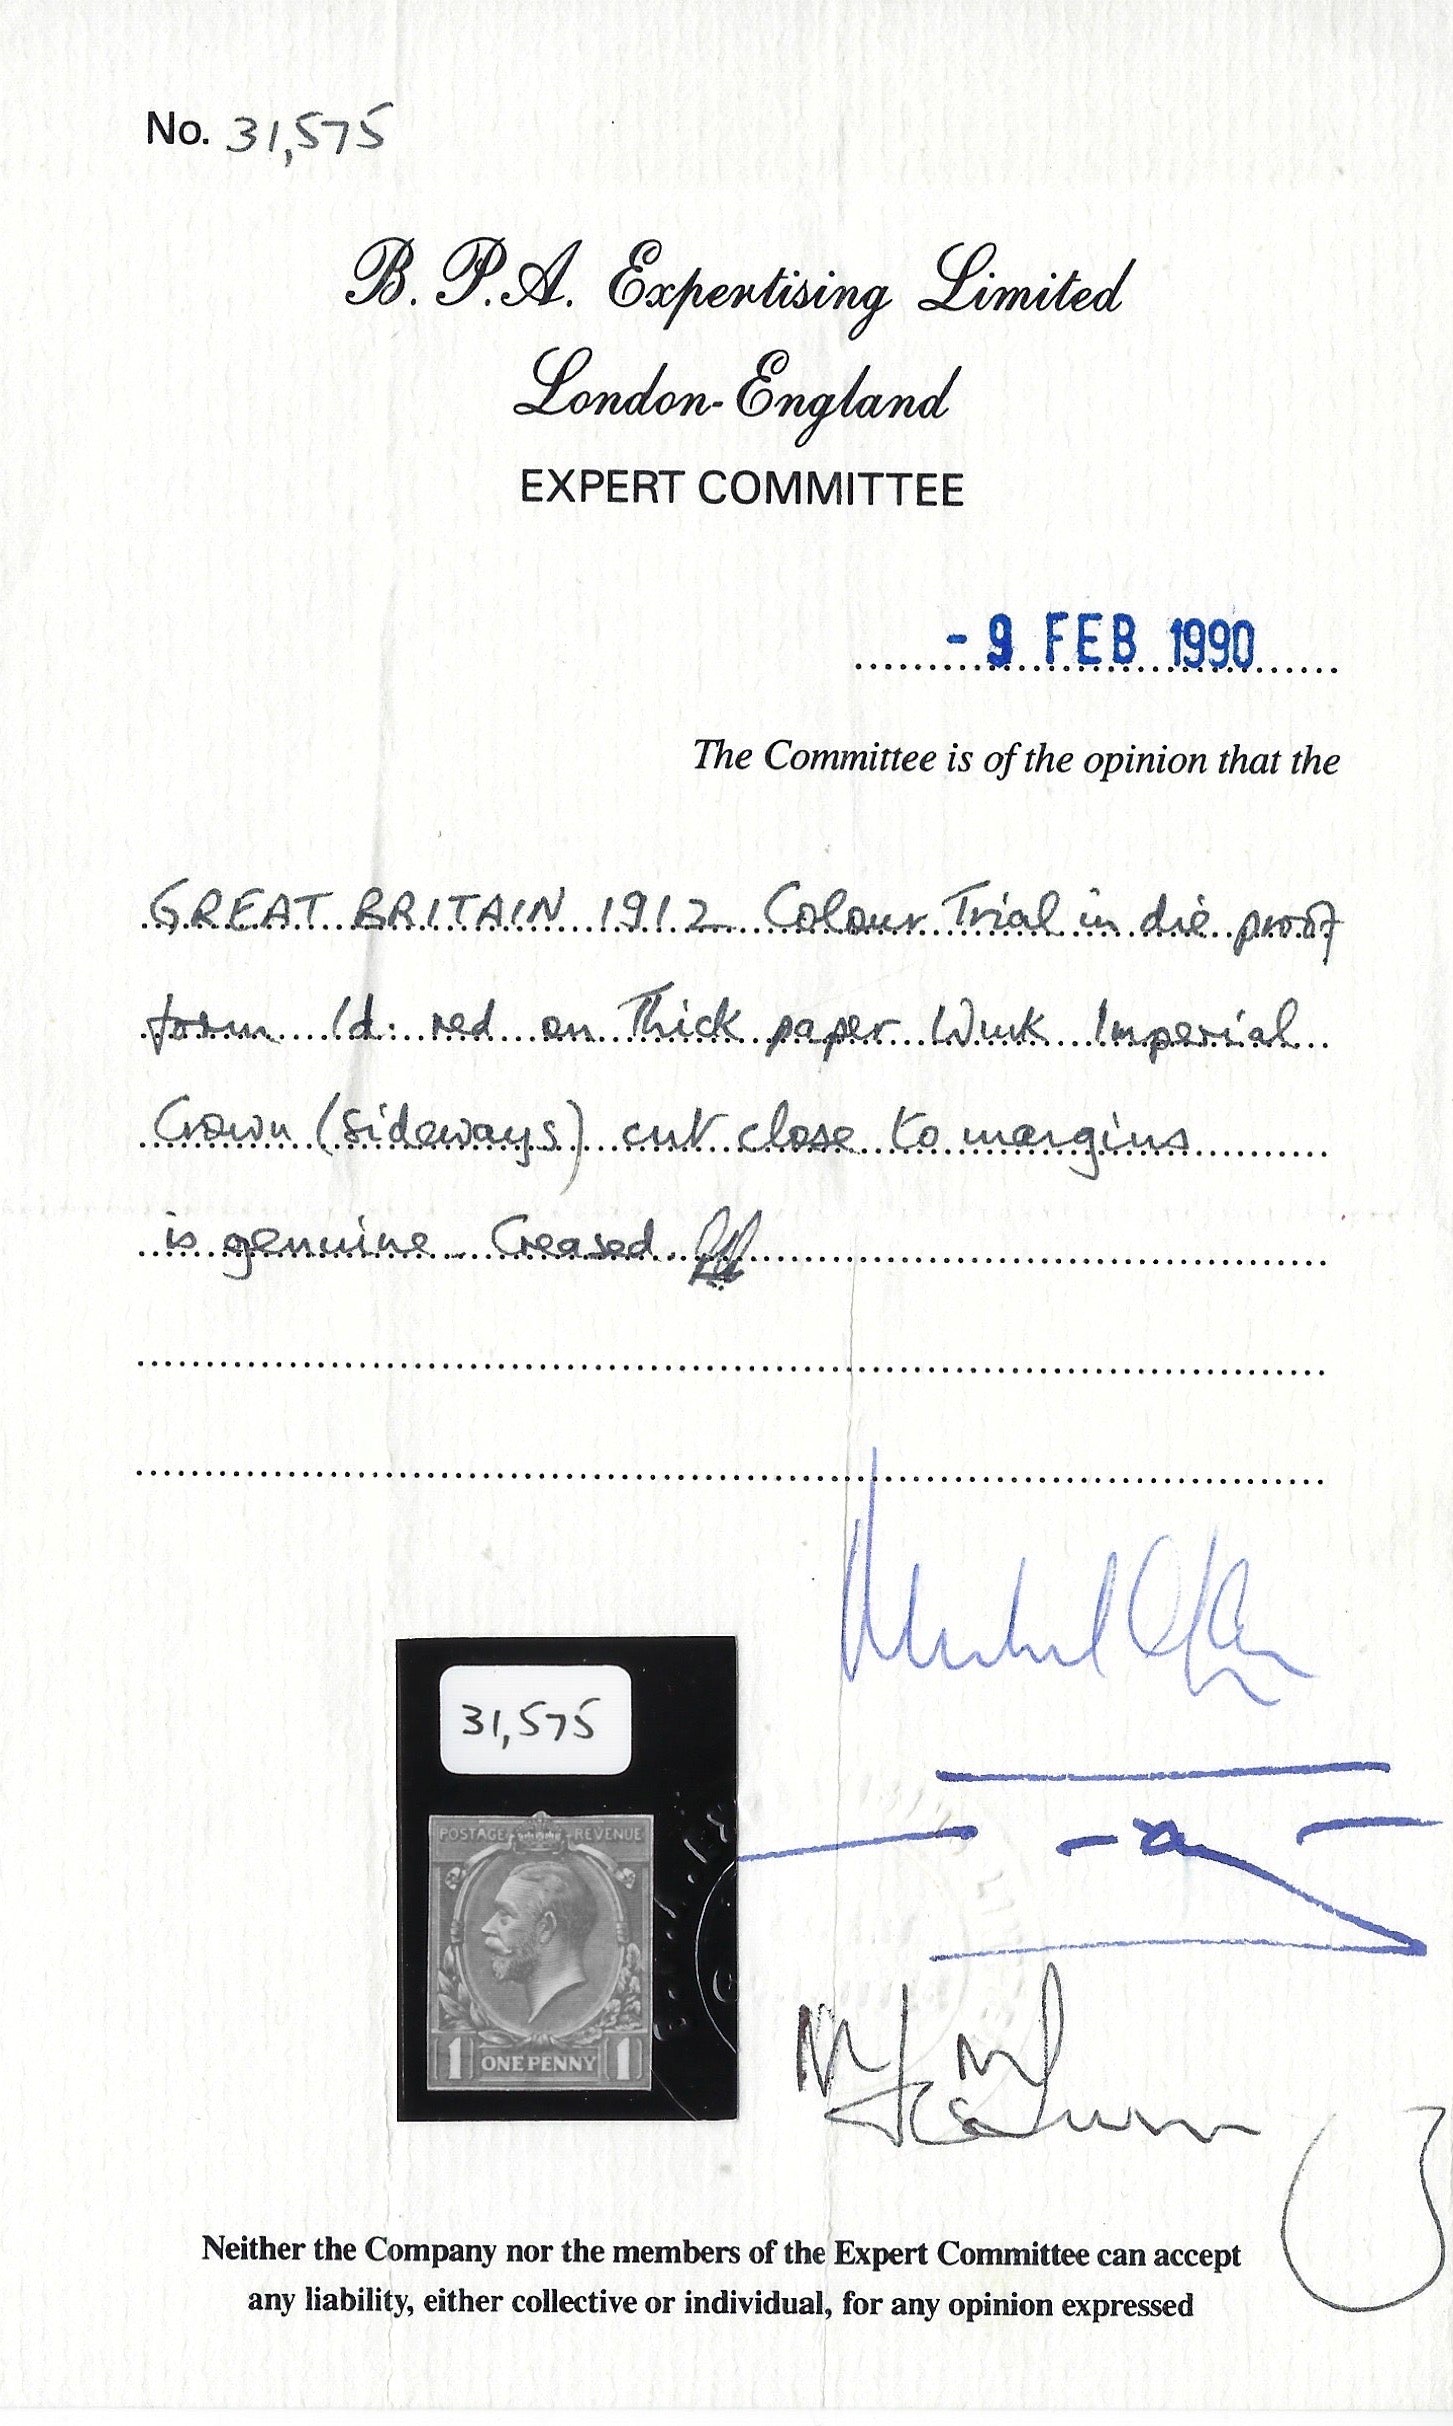 No. 31,575
B. P. A. Expertising Limited
London-England
EXPERT COMMITTEE
- 9 FEB 1990
The Committee is of the opinion that the
GREAT BRITAIN 1912 Colour Trial in die proof
form 1d. red on Thick paper Wmk Imperial
Crown (Sideways) cut close to margins
is genuine Creased.
31,575
POSTAGE REVENUE
1 ONE PENNY 1
Neither the Company nor the members of the Expert Committee can accept
any liability, either collective or individual, for any opinion expressed